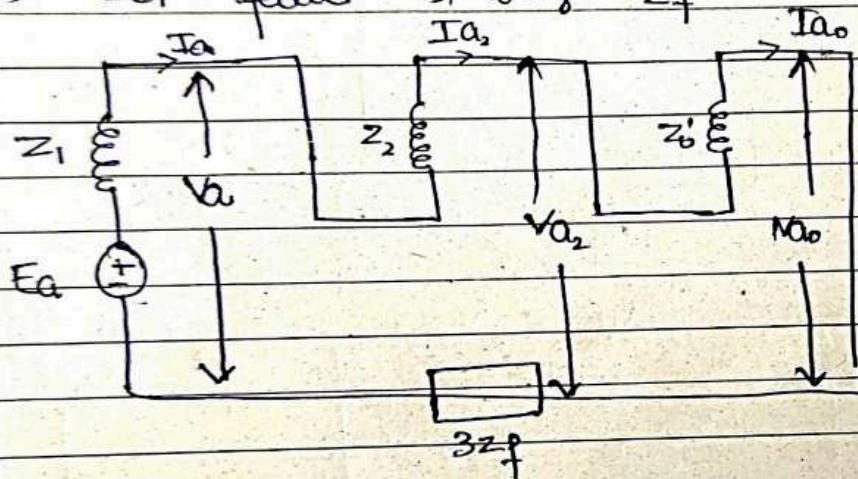 Ia Ia₂ Ia₀
Z₁ Z₂ Z₀'
Va
Va₂ Va₀
Ea + -
3Zf